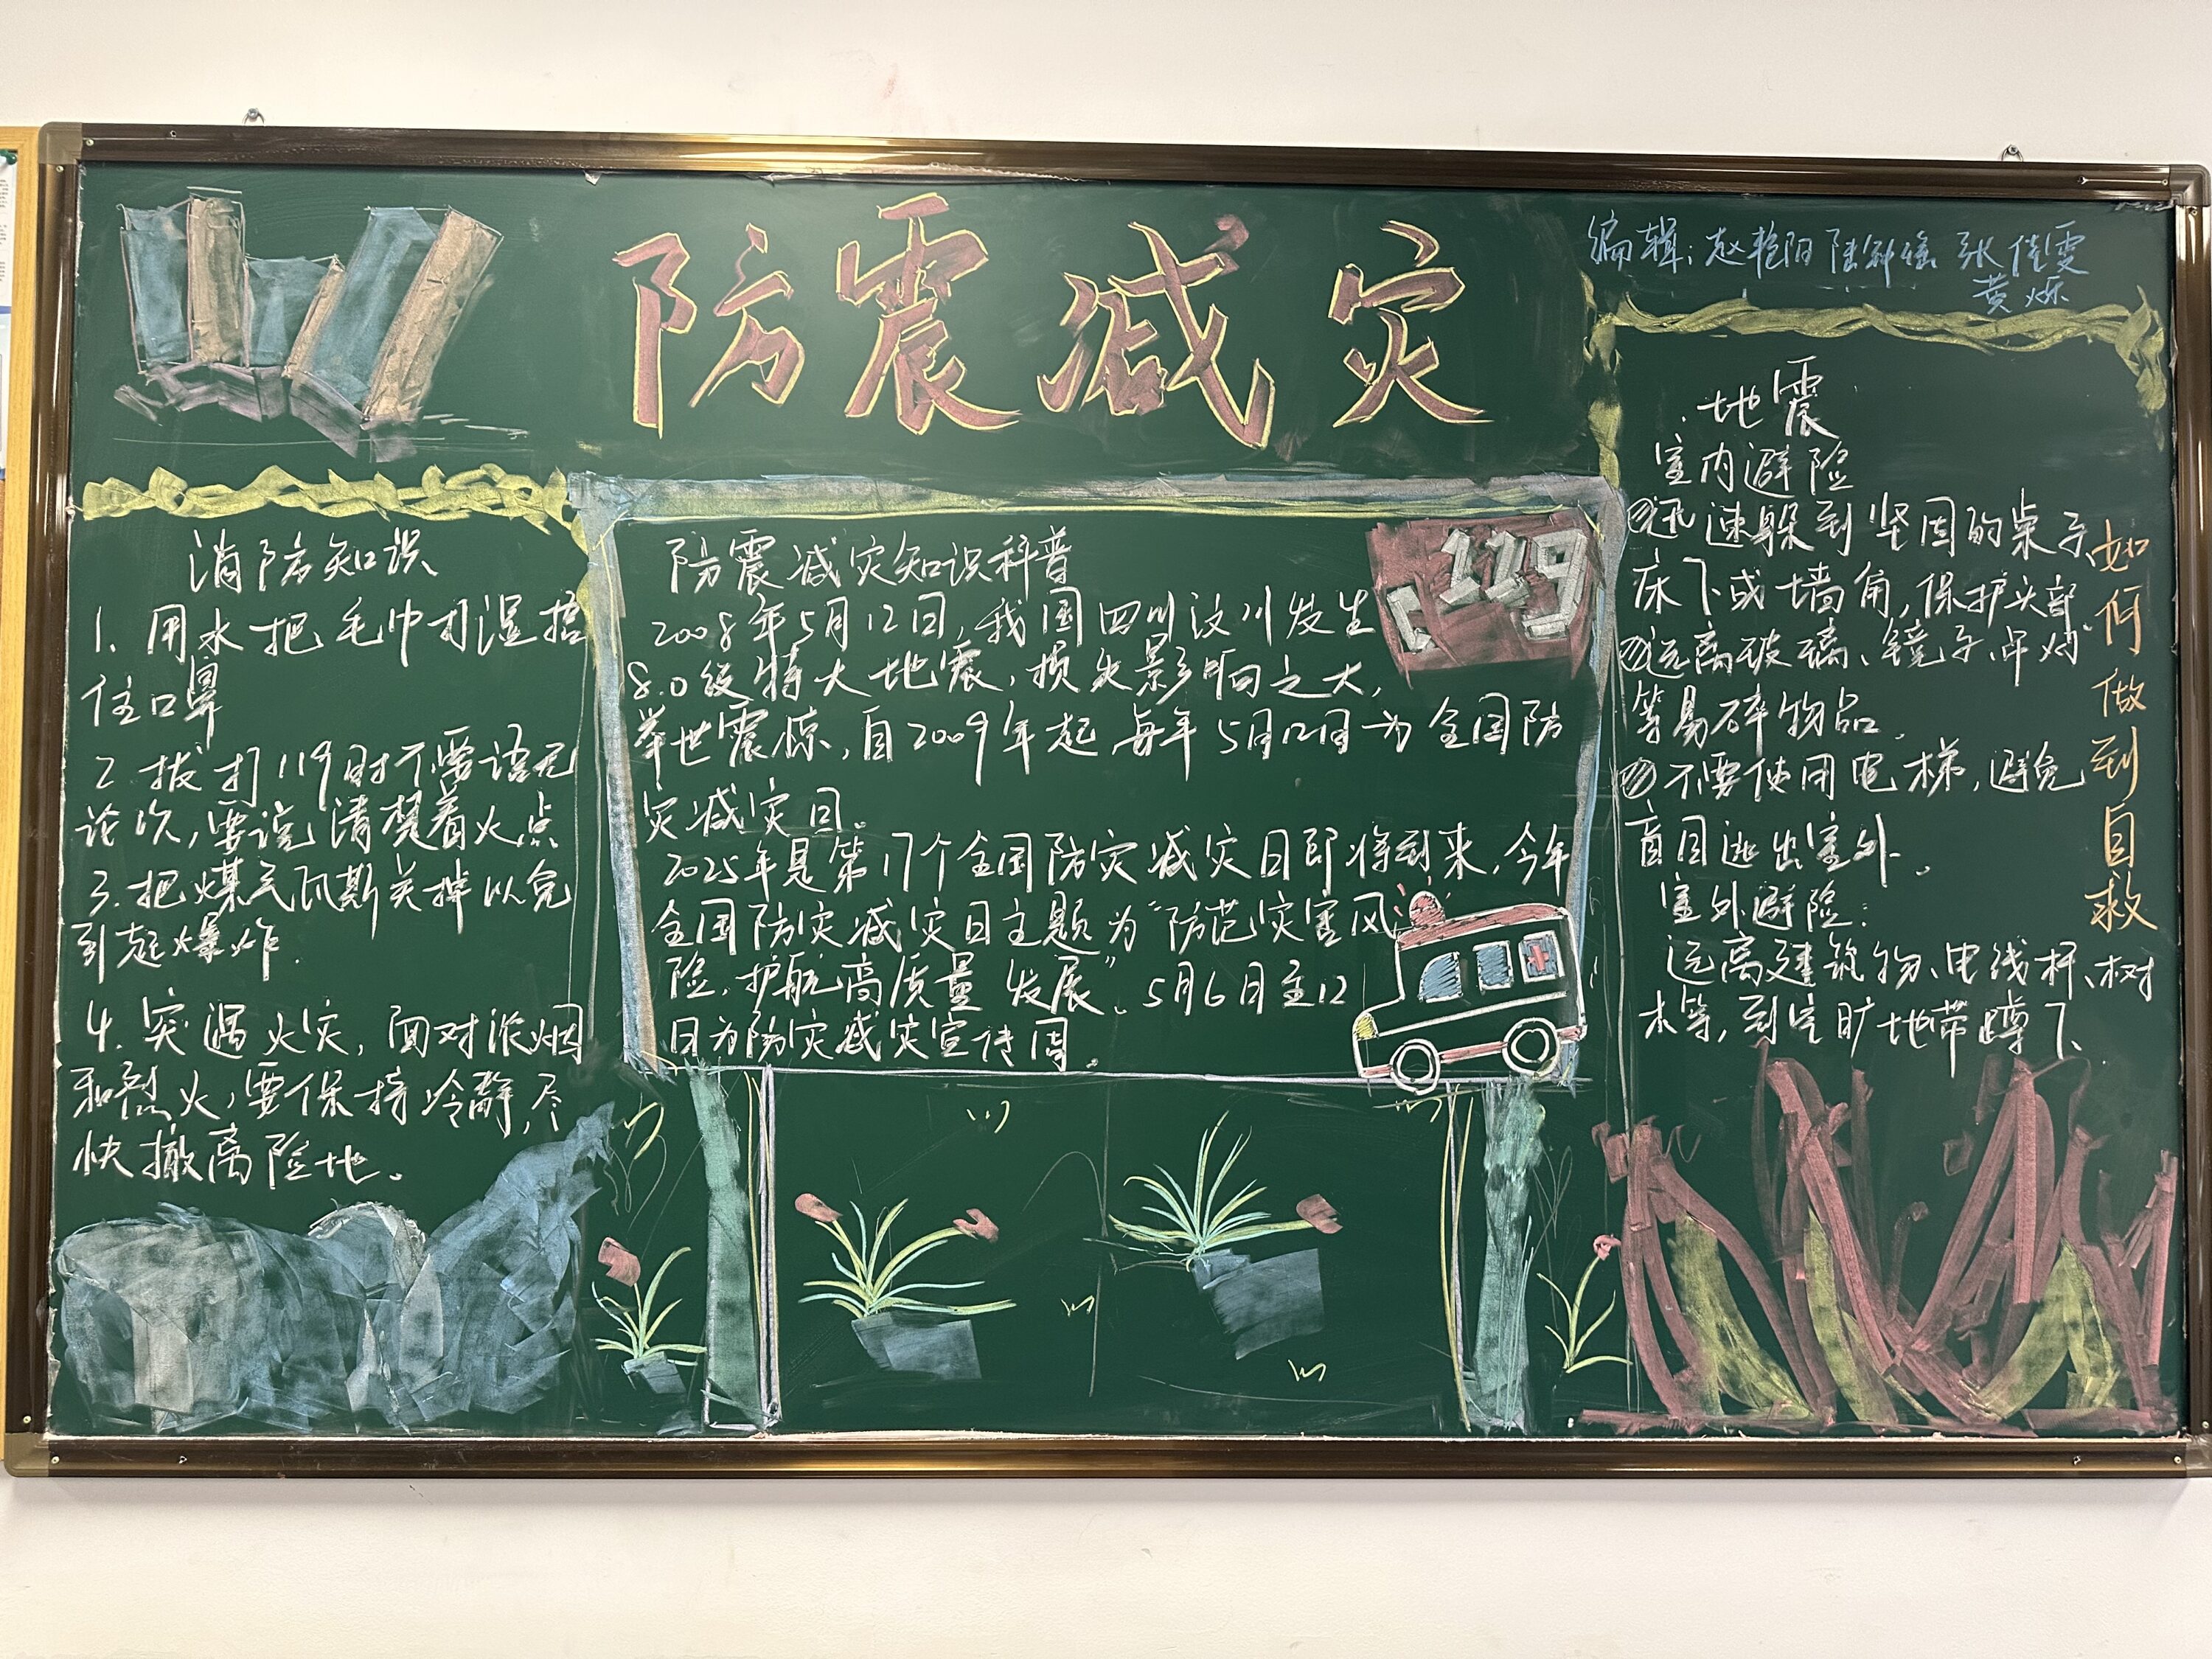 防震减灾
编辑：赵艳阳 陆 张佳雯
黄烁
消防知识
1. 用水把毛巾打湿捂
住口鼻
2. 拔打119时不要语无
论次，要说清楚着火点
3. 把煤气瓦斯关掉以免
引起爆炸.
4. 突遇火灾，面对浓烟
和烈火，要保持冷静，尽
快撤离险地。
防震减灾知识科普
2008年5月12日，我国四川汶川发生
8.0级特大地震，损失影响之大，
举世震惊，自2009年起，每年5月12日为全国防
灾减灾日。
2025年是第17个全国防灾减灾日即将到来，今年
全国防灾减灾日主题为“防范灾害风
险，护航高质量发展”、5月6日至12
日为防灾减灾宣传周。
119
地震
室内避险
①迅速躲到坚固的桌子、
床下或墙角，保护头部.
②远离玻璃、镜子、吊灯
等易碎物品.
③不要使用电梯，避免
盲目逃出室外.
室外避险：
远离建筑物、电线杆、树
木等，到空旷地带蹲下、
如何做到自救